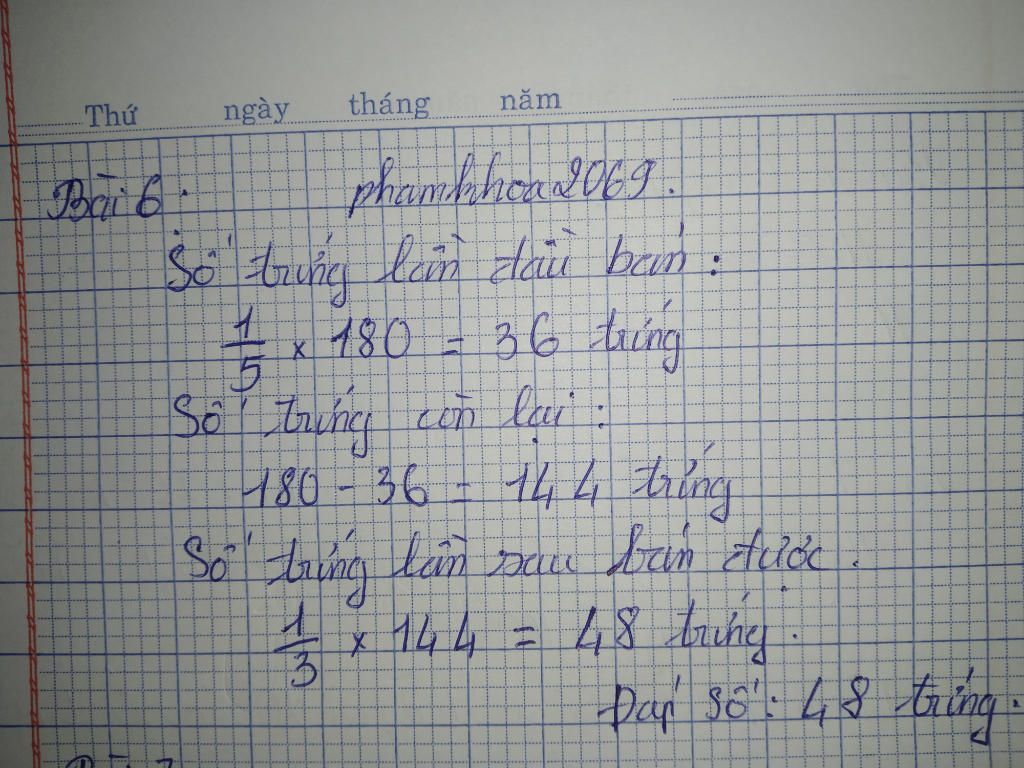 Thứ ngày tháng năm
Bài 6. phamkhoa2069.
Số trứng lần đầu bán:
1/5 × 180 = 36 trứng
Số trứng còn lại:
180 - 36 = 144 trứng
Số trứng lần sau bán được.
1/3 × 144 = 48 trứng.
Đáp số: 48 trứng.